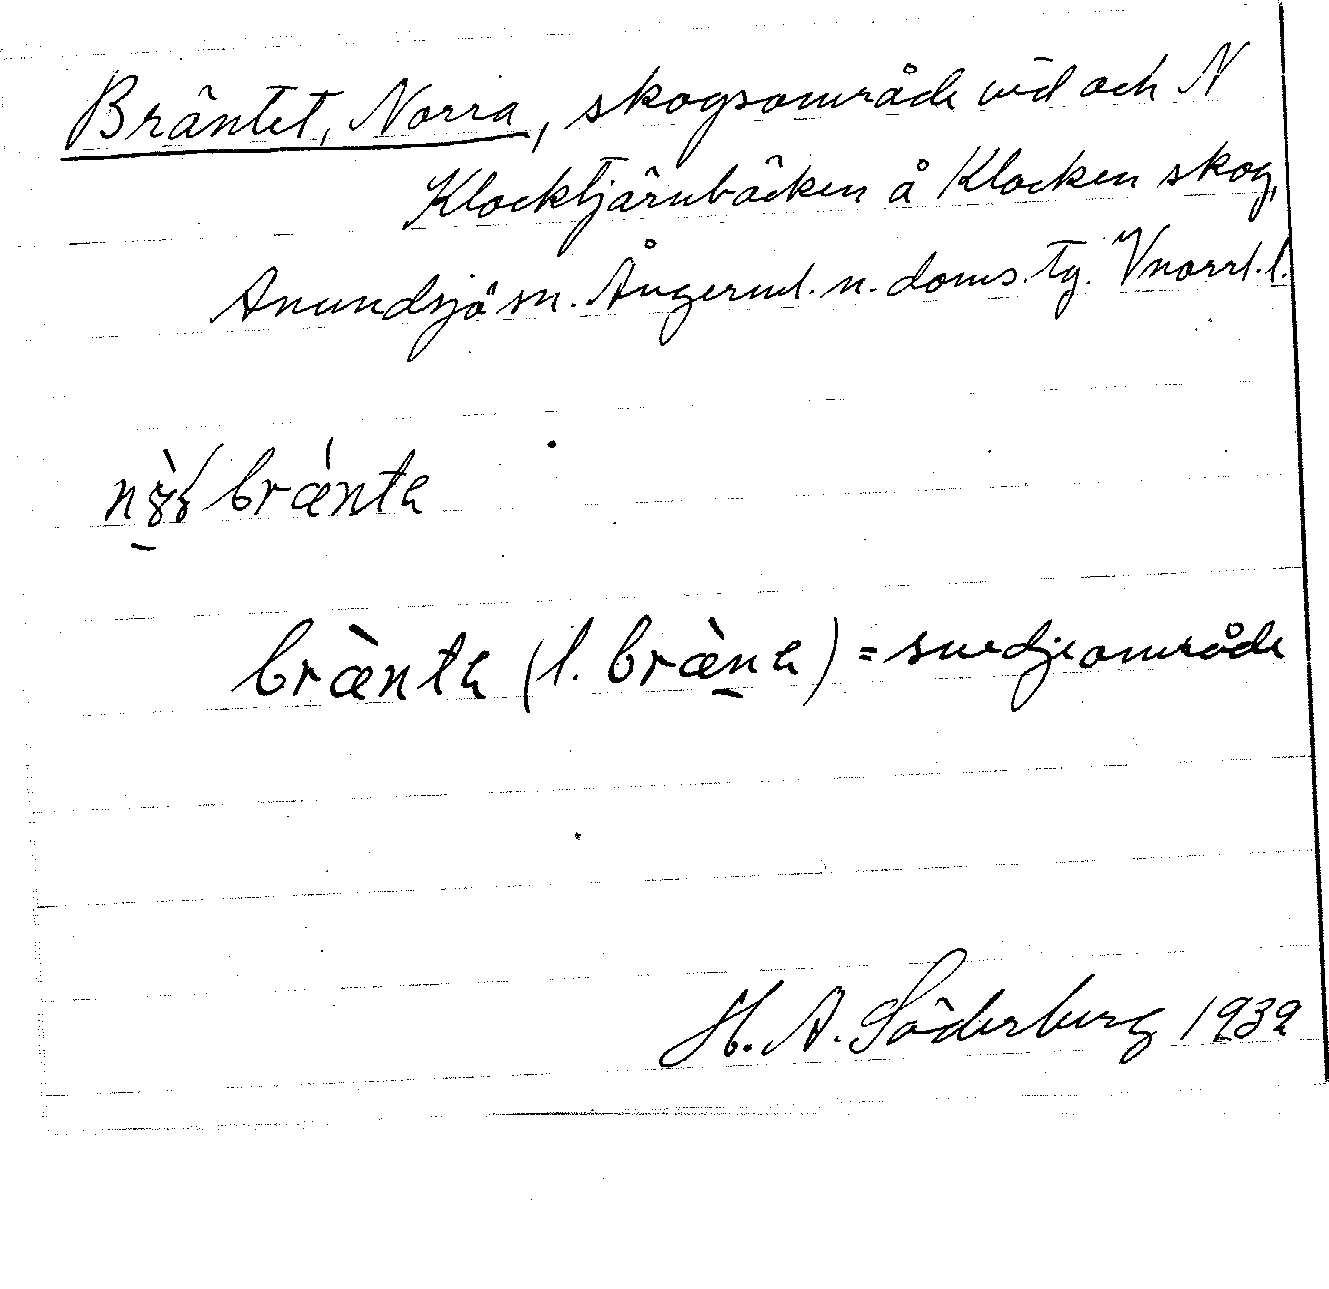 Bräntet, Norra, skogsområde vid och N
Klocktjärnbäcken å Klocken skog,
Anundsjö sn. Ångerml. n. doms. tg. Vnorrl. l.
bræ̀nta (l. bræ̀na) = svedjeområde
H. A. Söderberg 1939